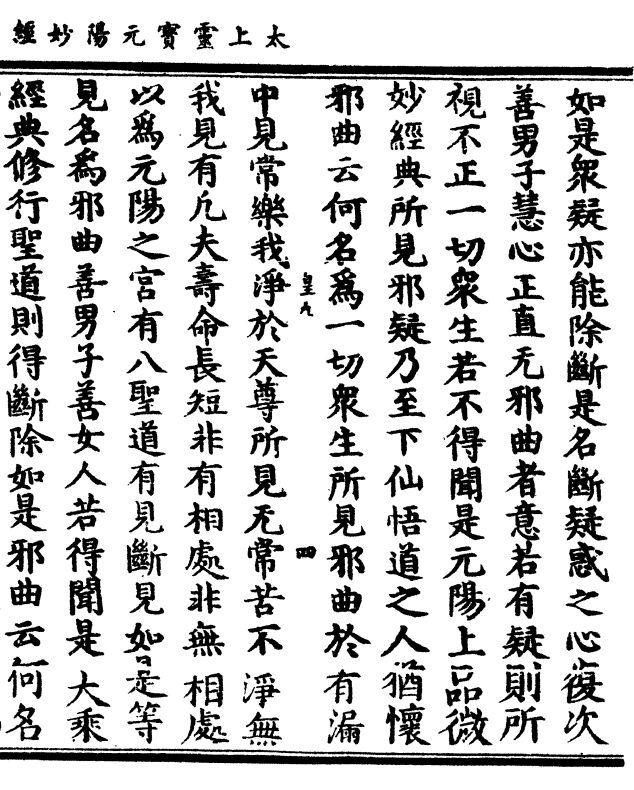 太上靈寶元陽妙經
如是衆疑亦能除斷是名斷疑惑之心復次
善男子慧心正直无邪曲者意若有疑則所
視不正一切衆生若不得聞是元陽上品微
妙經典所見邪疑乃至下仙悟道之人猶懷
邪曲云何名爲一切衆生所見邪曲於有漏
皇九
四
中見常樂我淨於天尊所見无常苦不淨無
我見有凡夫壽命長短非有相處非無相處
以爲元陽之宮有八聖道有見斷見如是等
見名爲邪曲善男子善女人若得聞是大乘
經典修行聖道則得斷除如是邪曲云何名